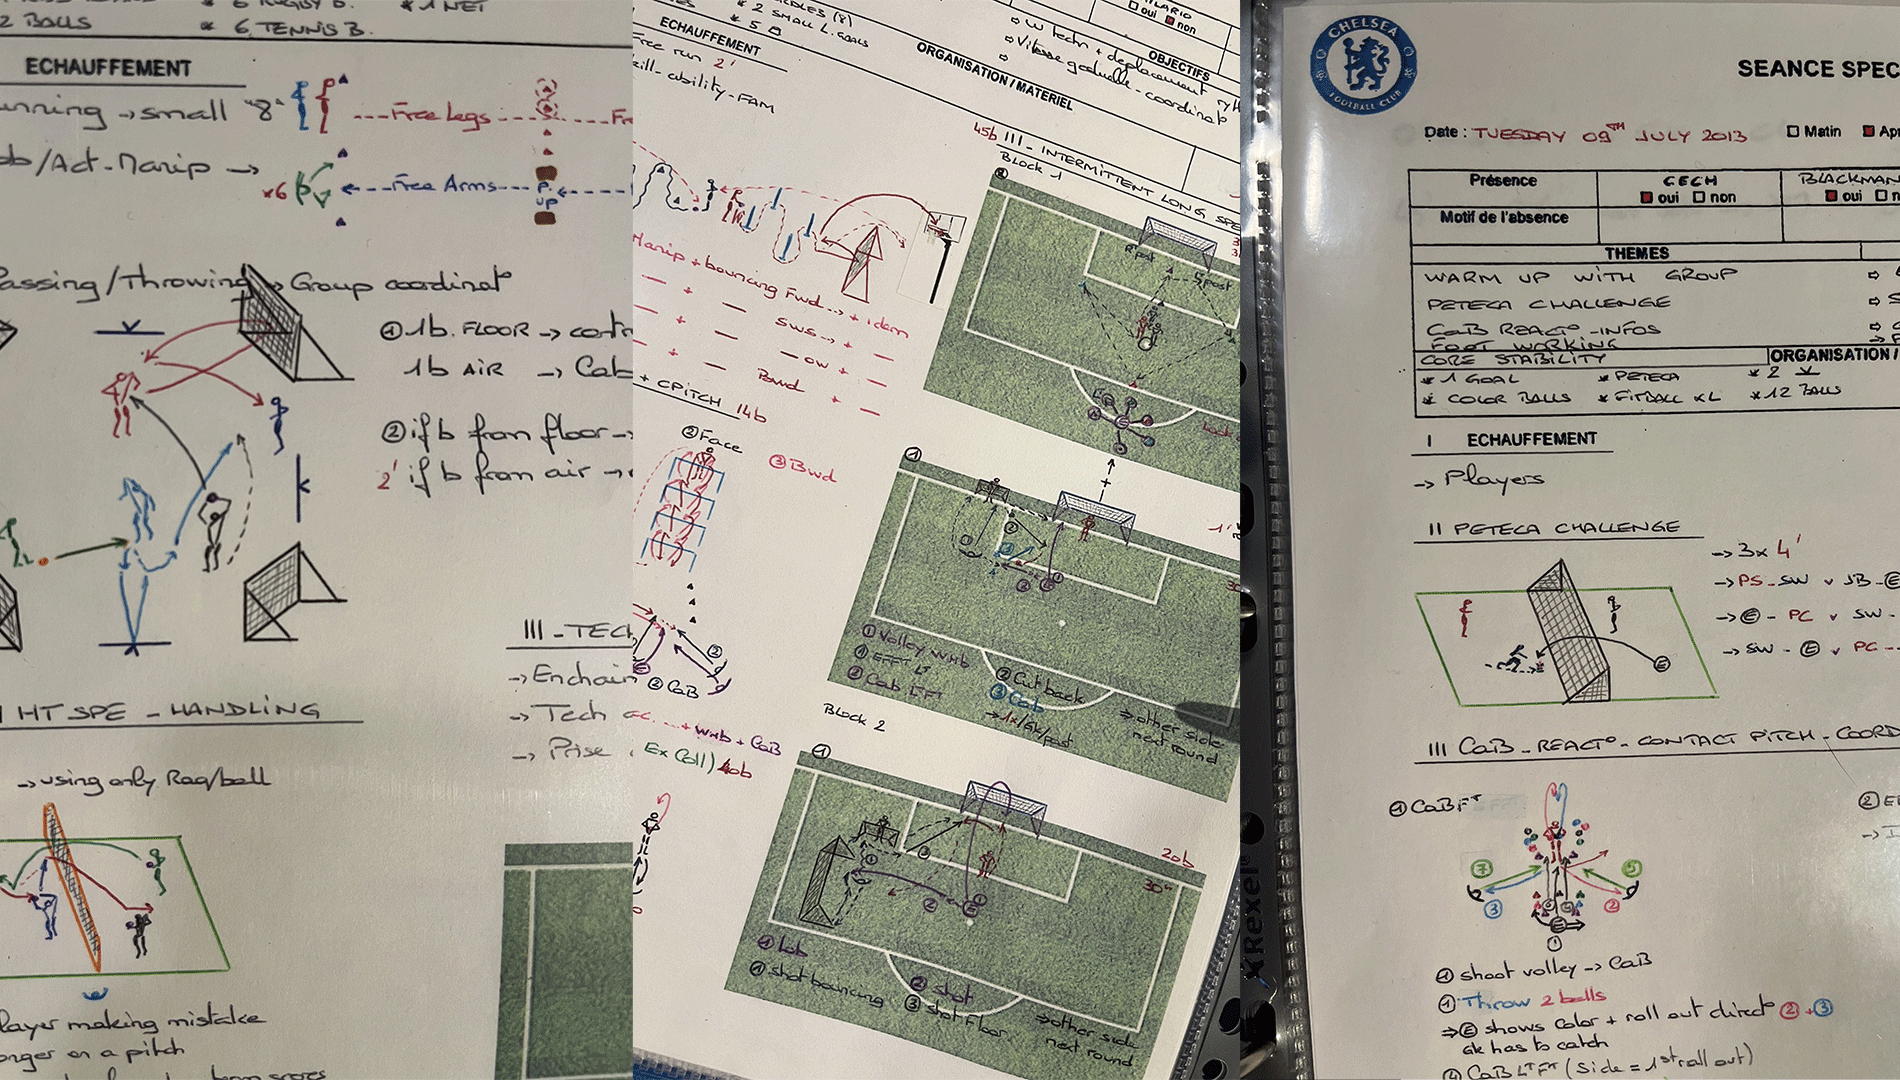 2 BALLS
* 6 RUGBY B.
* 1 NET
* 6 TENNIS B.
ECHAUFFEMENT
unning → small "8"
Free Legs
Act-Manip →
×6
Free Arms
P.
UP
Passing/Throwing
Group coordinat°
① 1b. FLOOR →
1b AIR → Cab
② if b from floor →
2' if b from air →
HT SPE - HANDLING
→ using only Rag/ball
layer making mistake
onger on a pitch
III - TECH
→ Enchain
→ Tech
→ Prise
* 2 SMALL L. GOALS
* 5
ECHAUFFEMENT
Free run 2'
ill-ability-FAM
ORGANISATION/MATERIEL
oui non
OBJECTIFS
⇒ W techn + deplacement
⇒ Vitesse graduelle - coordinat°
45b
III - INTERMITTENT LONG SPE
BLOCK 1
②
R post
L post
Manip + bouncing Fwd → + idem
— + — SWS → + —
— + — OW + —
— + — Bwd + —
+ CPITCH 14b
② Face
③ Bwd
②
② CaB
+ WHB + CaB
Ex Coll) 40b
①
① Volley WHB
① EFFT LT
② Cab LFT
② Cut back
③ Cab
→ 1x/Gk/post
⇒ other side
next round
BLOCK 2
①
20b
30"
① Lob
① shot bouncing
② shot
③ shot floor
⇒ other side
next round
Rexel
CHELSEA
FOOTBALL CLUB
SEANCE SPEC
Date : TUESDAY 09TH JULY 2013
Matin
Présence
CECH
BLACKMAN
oui non
oui
Motif de l'absence
THEMES
WARM UP WITH GROUP
PETECA CHALLENGE
CaB REACT° - INFOS
FOOT WORKING
CORE STABILITY
ORGANISATION /
* 1 GOAL
* PETECA
* 2
* COLOR BALLS
* FITBALL XL
* 12 BALLS
I ECHAUFFEMENT
→ Players
II PETECA CHALLENGE
→ 3x 4'
→ PS - SW v JB - Ⓔ
→ Ⓔ - PC v SW -
→ SW - Ⓔ v PC --
Ⓔ
III CaB - REACT° - CONTACT PITCH - COORD
① CaB FT
②
⑦
③
②
① shoot volley → CaB
① Throw 2 balls
⇒ Ⓔ shows color + roll out direct° ② + ③
Gk has to catch
④ CaB LT FT (side = 1st roll out)